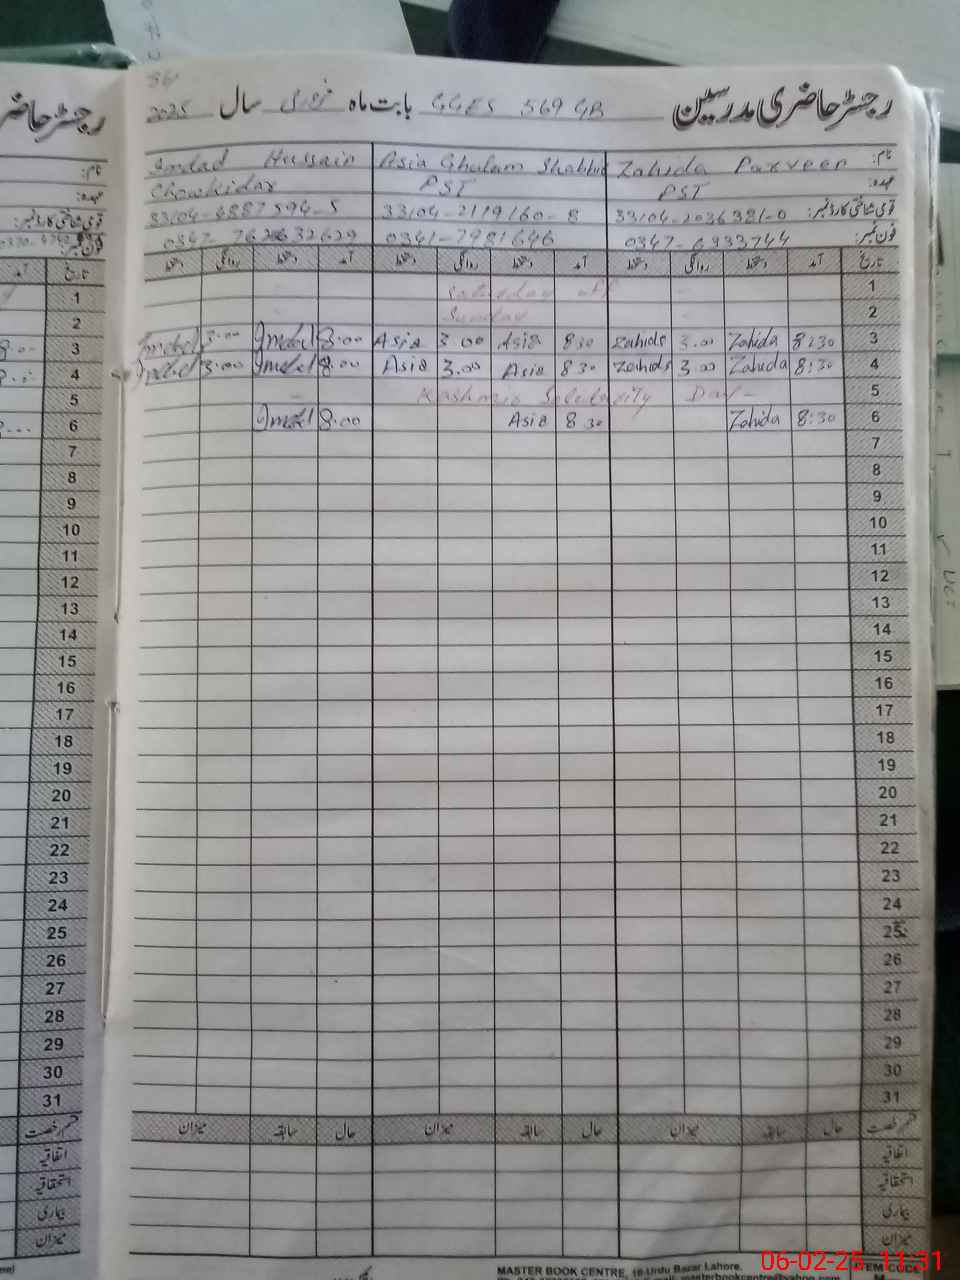 رجسٹر حاضری مدرسین GGES 569 GB بابت ماہ فروری سال 2025
نام: Zahida Parveen Asia Ghulam Shabbir Imdad Hussain
عہدہ: PST PST Chowkidar
قومی شناختی کارڈ نمبر: 33104-2036381-0 33104-2119160-8 33104-4887594-5
فون نمبر: 0347-6933744 0341-7981646
تاریخ آمد دستخط روانگی دستخط آمد دستخط روانگی دستخط آمد دستخط روانگی دستخط
1 Saturday off
2 Sunday
3 8:30 Zahida 3.00 Zahida 8 30 Asia 3.00 Asia 8:00 Imdad 3:00 Imdad
4 8:30 Zahida 3.00 Zahida 8 30 Asia 3.00 Asia 8:00 Imdad 3:00 Imdad
5 Kashmir Solidarity Day
6 8:30 Zahida 8 30 Asia 8:00 Imdad
7
8
9
10
11
12
13
14
15
16
17
18
19
20
21
22
23
24
25
26
27
28
29
30
31
قسم رخصت حال سابقہ میزان حال سابقہ میزان حال سابقہ میزان
اتفاقیہ
استحقاقیہ
بیماری
میزان
MASTER BOOK CENTRE, 16-Urdu Bazar Lahore.
ITEM CODE
06-02-25 11:31
رجسٹر حاضر
نام:
عہدہ:
قومی شناختی کارڈ نمبر:
فون نمبر:
تاریخ آمد
1
2
3
4
5
6
7
8
9
10
11
12
13
14
15
16
17
18
19
20
21
22
23
24
25
26
27
28
29
30
31
قسم رخصت
اتفاقیہ
استحقاقیہ
بیماری
میزان